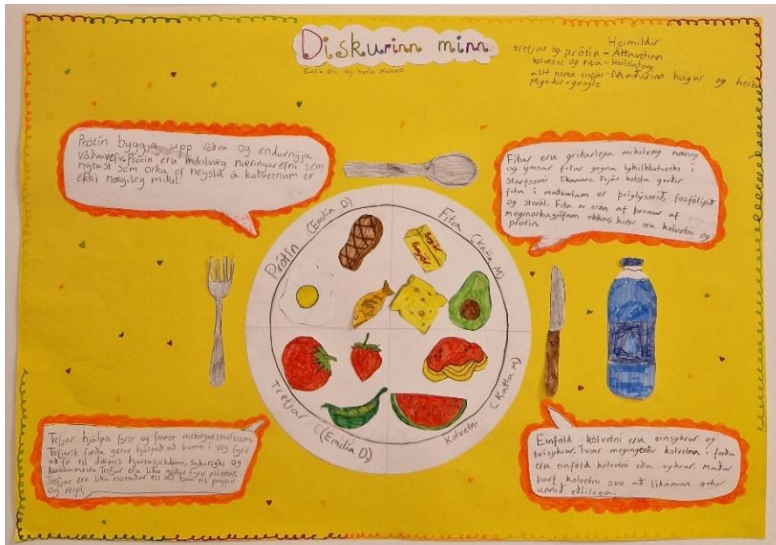 Diskurinn minn
Emilía og Katla
Heimildir
trefjar og prótín - Áttavitinn
kolvetni og fita - Heilsutorg
allt nema trefjar - Maðurinn hugur og
Myndir - google
Prótín byggja upp vöðva og endurnýja
vöðvavefi. Prótín eru mikilvæg næringarefni sem
nýtast sem orka ef neysla á kolvetnum er
ekki nægileg mikil.
Fitur eru gríðarlega mikilvæg næring
og ýmsar fitur gegna lykilhlutverki í
starfsemi líkamans. Þrjár helstu gerðir
fitu í matvælum eru þríglýseríð, fosfólípíð
og steról. Fita er eina af þremur af
meginorkugjöfum okkar, hinir eru kolvetni og
prótín.
Prótín (Emilía D)
Fita (Katla M)
Smjör
Smjör
Trefjar (Emilía D)
Kolvetni (Katla M)
Trefjar hjálpa fyrir og fremst meltingarstarfsemi
Trefjarík fæða getur hjálpað að koma í veg fyrir
að fá til dæmis hjartasjúkdóma, sykursýki og
krabbamein. Trefjar eru líka góðar fyrir
Trefjar eru líka notaðar til að búa til pappír
og reipi.
Einföld kolvetni eru einsykrur og
tvísykrur. Tvær megingerðir kolvetna í fæðu
eru einföld kolvetni eða sykrur. Maður
þarf kolvetni svo að líkaminn getur
unnið eðlilega.